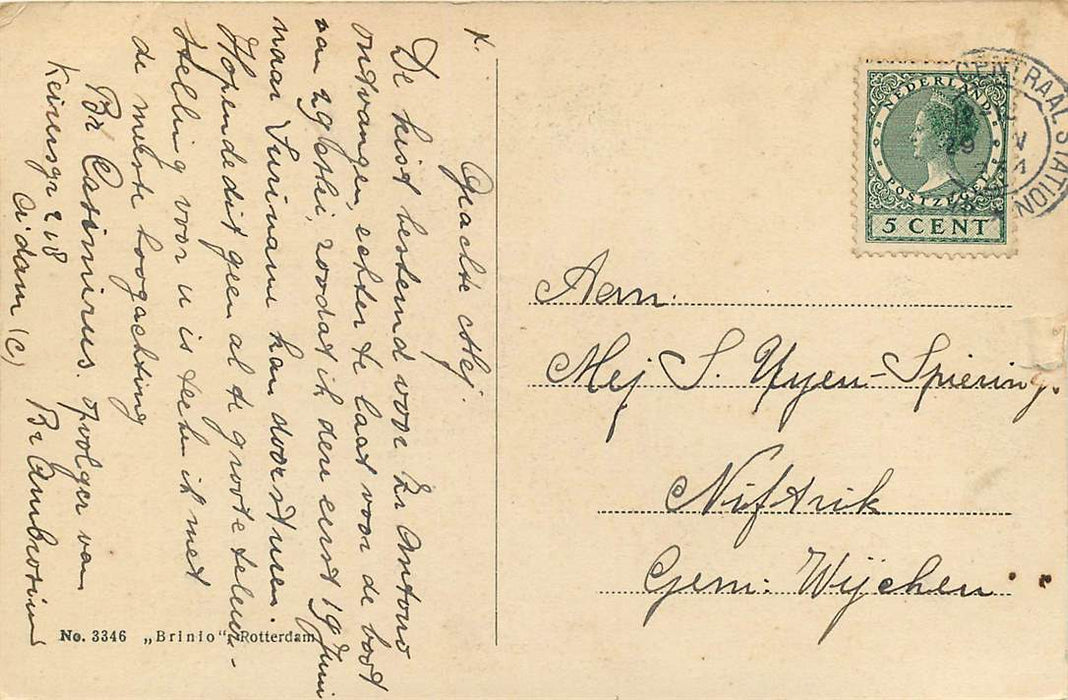 x.
Geachte Mej.
De kist bestemd voor Br Antono
ontvangen, echter te laat voor de boot
van 29 Mei, zoodat ik den eerst 19 Juni
naar Suriname kan doorsturen.
Hopende dat geen al te groote teleur-
stelling voor u is teeken ik met
de meeste hoogachting
Br Casimirus. opvolger van
Keizersgr 218 Br Ambrosius
A'dam (C)
No. 3346 „Brinio“, Rotterdam
NEDERLAND
POSTZEGEL
5 CENT
CENTRAAL STATION
Aan.
Mej S. Uyen-Spierings.
Niftrik
Gem: Wijchen.